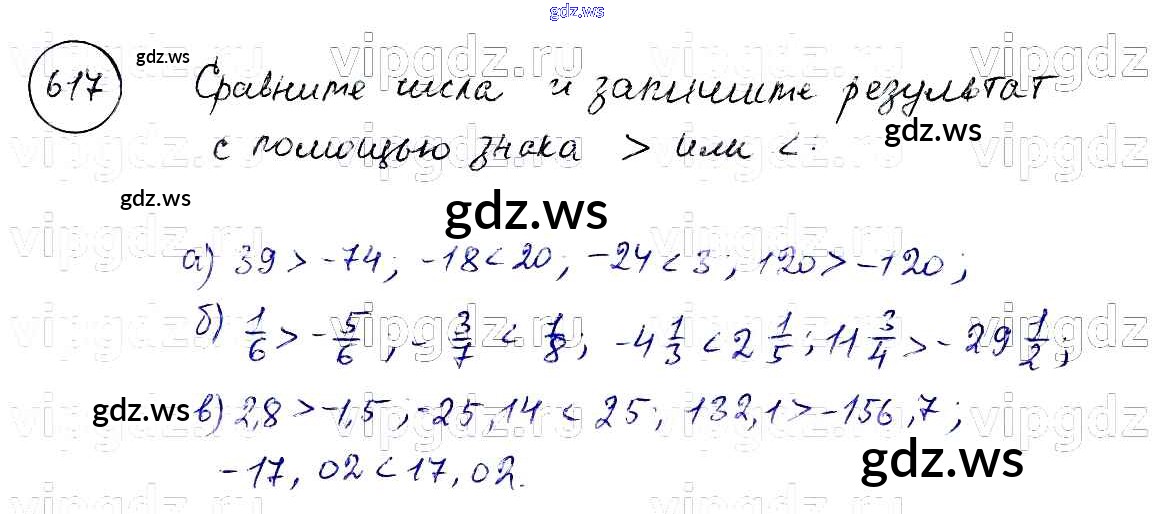 gdz.ws
617 Сравните числа и запишите результат
с помощью знака > или <.
а) 39 > -74; -18 < 20; -24 < 3; 120 > -120;
б) 1/6 > -5/6; -3/7 < 1/8; -4 1/3 < 2 1/5; 11 3/4 > -29 1/2;
в) 2,8 > -1,5; -25,14 < 25; 132,1 > -156,7;
-17,02 < 17,02.
gdz.ws
gdz.ws
gdz.ws
gdz.ws
gdz.ws
gdz.ws
vipgdz.ru